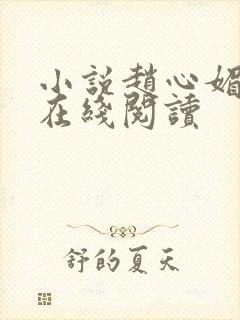 小說趙心媚
在綫閱讀
舒的夏天